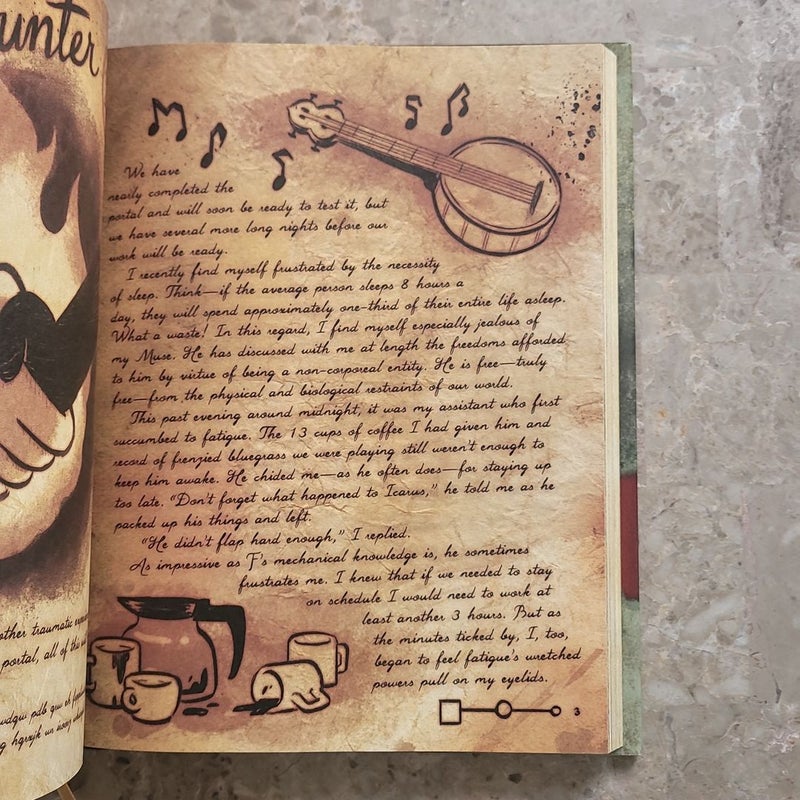 unter
other traumatic
portal, all of
We have
nearly completed the
portal and will soon be ready to test it, but
we have several more long nights before our
work will be ready.
I recently find myself frustrated by the necessity
of sleep. Think—if the average person sleeps 8 hours a
day, they will spend approximately one-third of their entire life asleep.
What a waste! In this regard, I find myself especially jealous of
my Muse. He has discussed with me at length the freedoms afforded
to him by virtue of being a non-corporeal entity. He is free—truly
free—from the physical and biological restraints of our world.
This past evening around midnight, it was my assistant who first
succumbed to fatigue. The 13 cups of coffee I had given him and
record of frenzied bluegrass we were playing still weren't enough to
keep him awake. He chided me—as he often does—for staying up
too late. "Don't forget what happened to Icarus," he told me as he
packed up his things and left.
"He didn't flap hard enough," I replied.
As impressive as F's mechanical knowledge is, he sometimes
frustrates me. I knew that if we needed to stay
on schedule I would need to work at
least another 3 hours. But as
the minutes ticked by, I, too,
began to feel fatigue's wretched
powers pull on my eyelids.
3